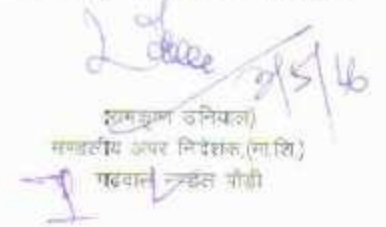 2/5/16
(रामकृष्ण उनियाल)
मण्डलीय अपर निदेशक,(मा.शि.)
गढवाल मण्डल पौड़ी